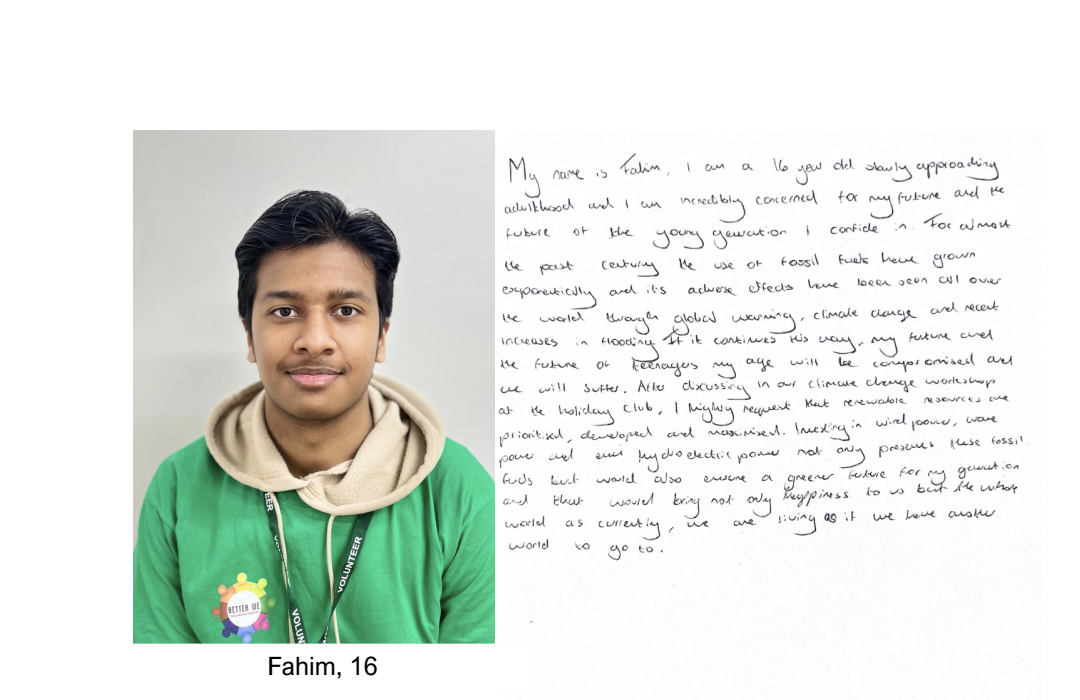 My name is Fahim, I am a 16 year old slowly approaching
adulthood and I am incredibly concerned for my future and the
future of the young generation I confide in. For almost
the past century the use of fossil fuels have grown
exponentially and its adverse effects have been seen all over
the world through global warming, climate change and recent
increases in flooding. If it continues this way, my future and
the future of teenagers my age will be compromised and
we will suffer. After discussing in our climate change workshop
at the holiday club, I highly request that renewable resources are
prioritised, developed and maximised. Investing in wind power, wave
power and even hydroelectric power not only preserves these fossil
fuels but would also ensure a greener future for my generation
and that would bring not only happiness to us but the whole
world as currently, we are living as if we have another
world to go to.
VOLUNTEER
BETTER WE
Fahim, 16